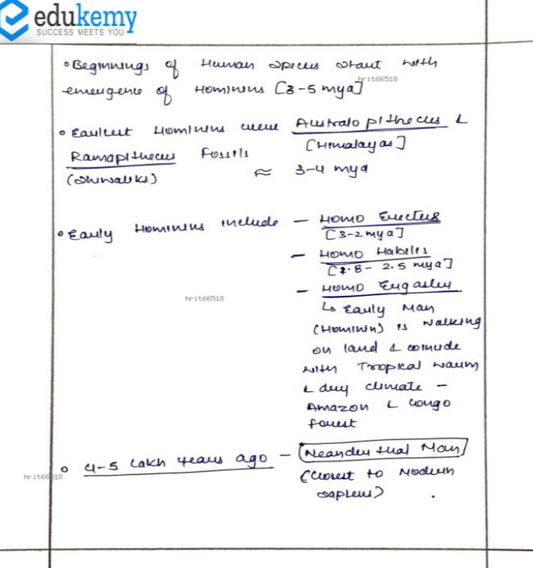 edukemy
SUCCESS MEETS YOU
• Beginnings of Human species start with
hrit66518
emergence of Hominins [3-5 mya]
• Earliest Hominins were Australopithecus &
[Himalayas]
Ramapithecus Fossils
(Shiwaliks) ≈ 3-4 mya
• Early Hominins include – Homo Erectus
[3-2 mya]
– Homo Habilis
[2.8 - 2.5 mya]
hrit66518
– Homo Ergaster
↳ Early Man
(Hominin) is walking
on land & coincide
with Tropical warm
& dry climate –
Amazon & Congo
forest
• 4-5 Lakh years ago – Neanderthal Man
hrit66518
(Closest to Modern
Sapiens)